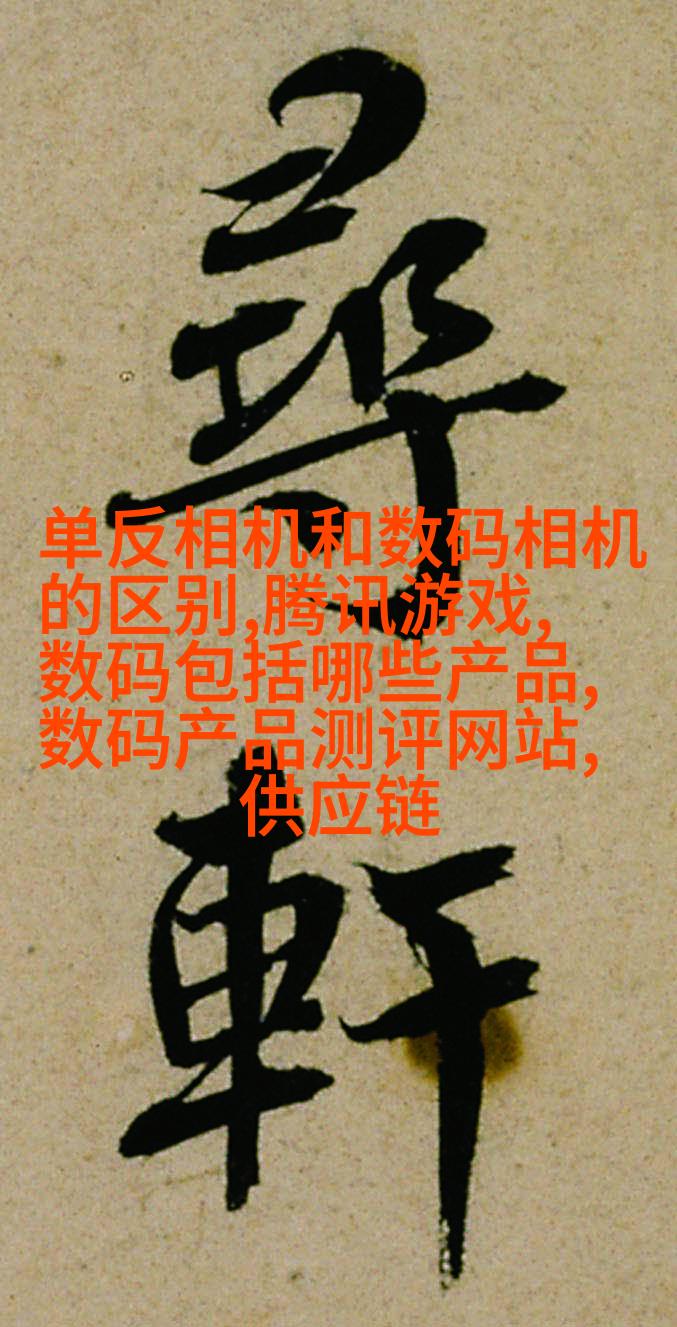 尋
單反相机和数码相机
的区别,腾讯游戏,
数码包括哪些产品,
数码产品测评网站,
供应链
軒